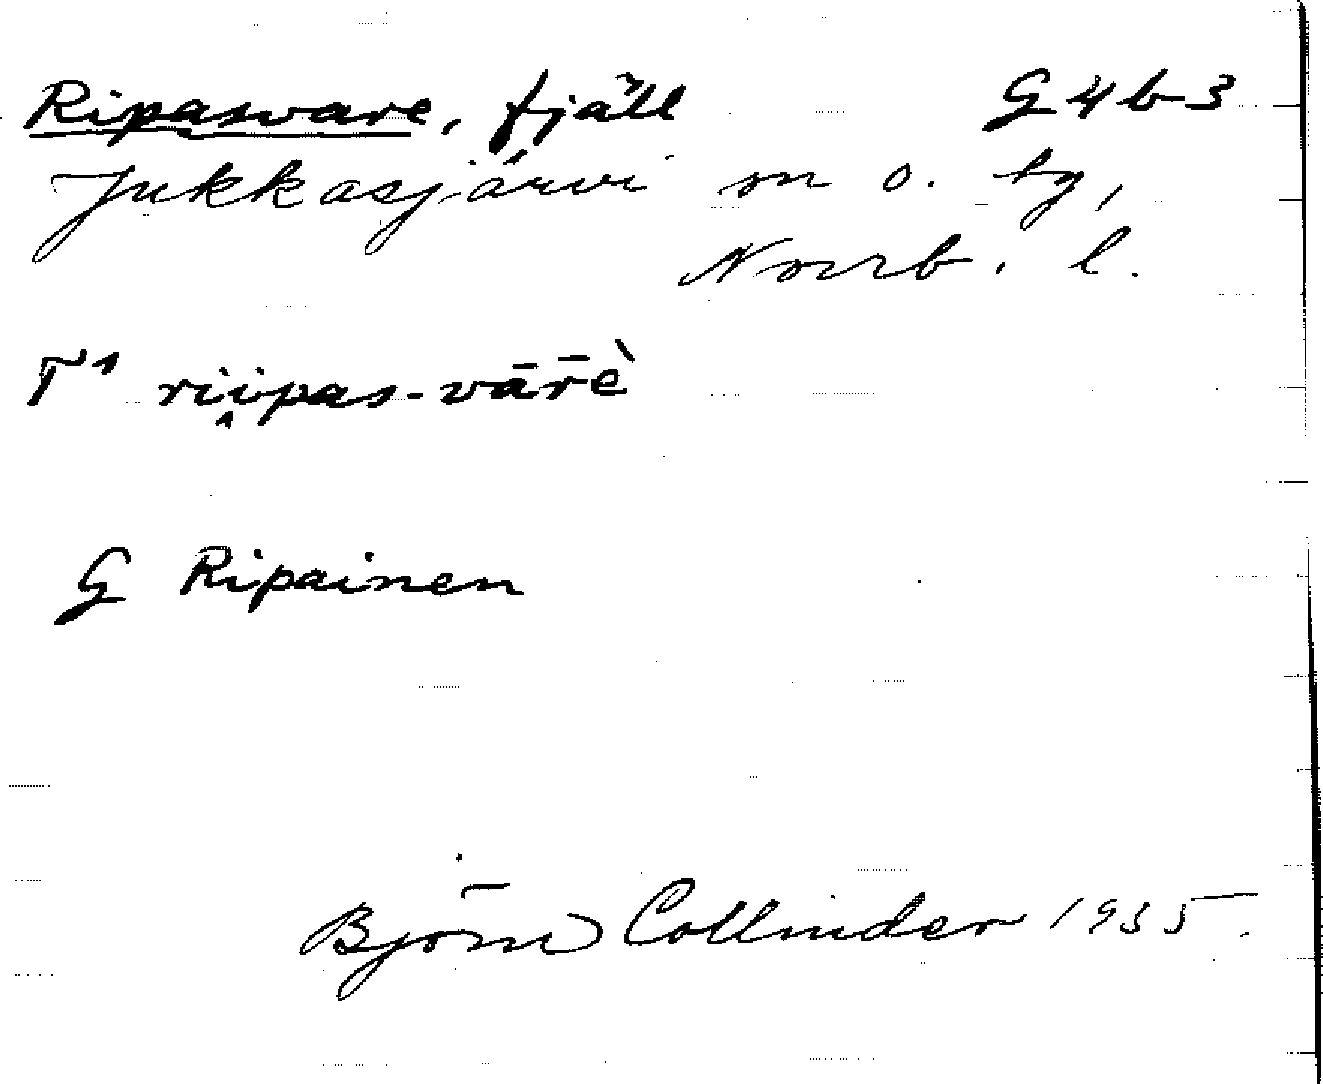 Ripasvare, fjäll G4b3
Jukkasjärvi sn o. tg,
Norrb. l.
T¹ rii̭pas-vārḕ
G Ripainen
Björn Collinder 1935.